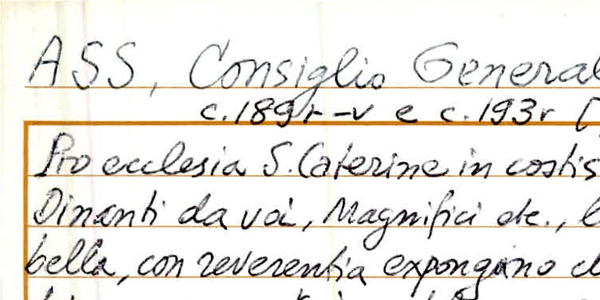 ASS, Consiglio General
c.189r-v e c.193r [
Pro ecclesia S. Caterine in costis
Dinanti da voi, Magnifici etc., l
bella, con reverentia expongino ch